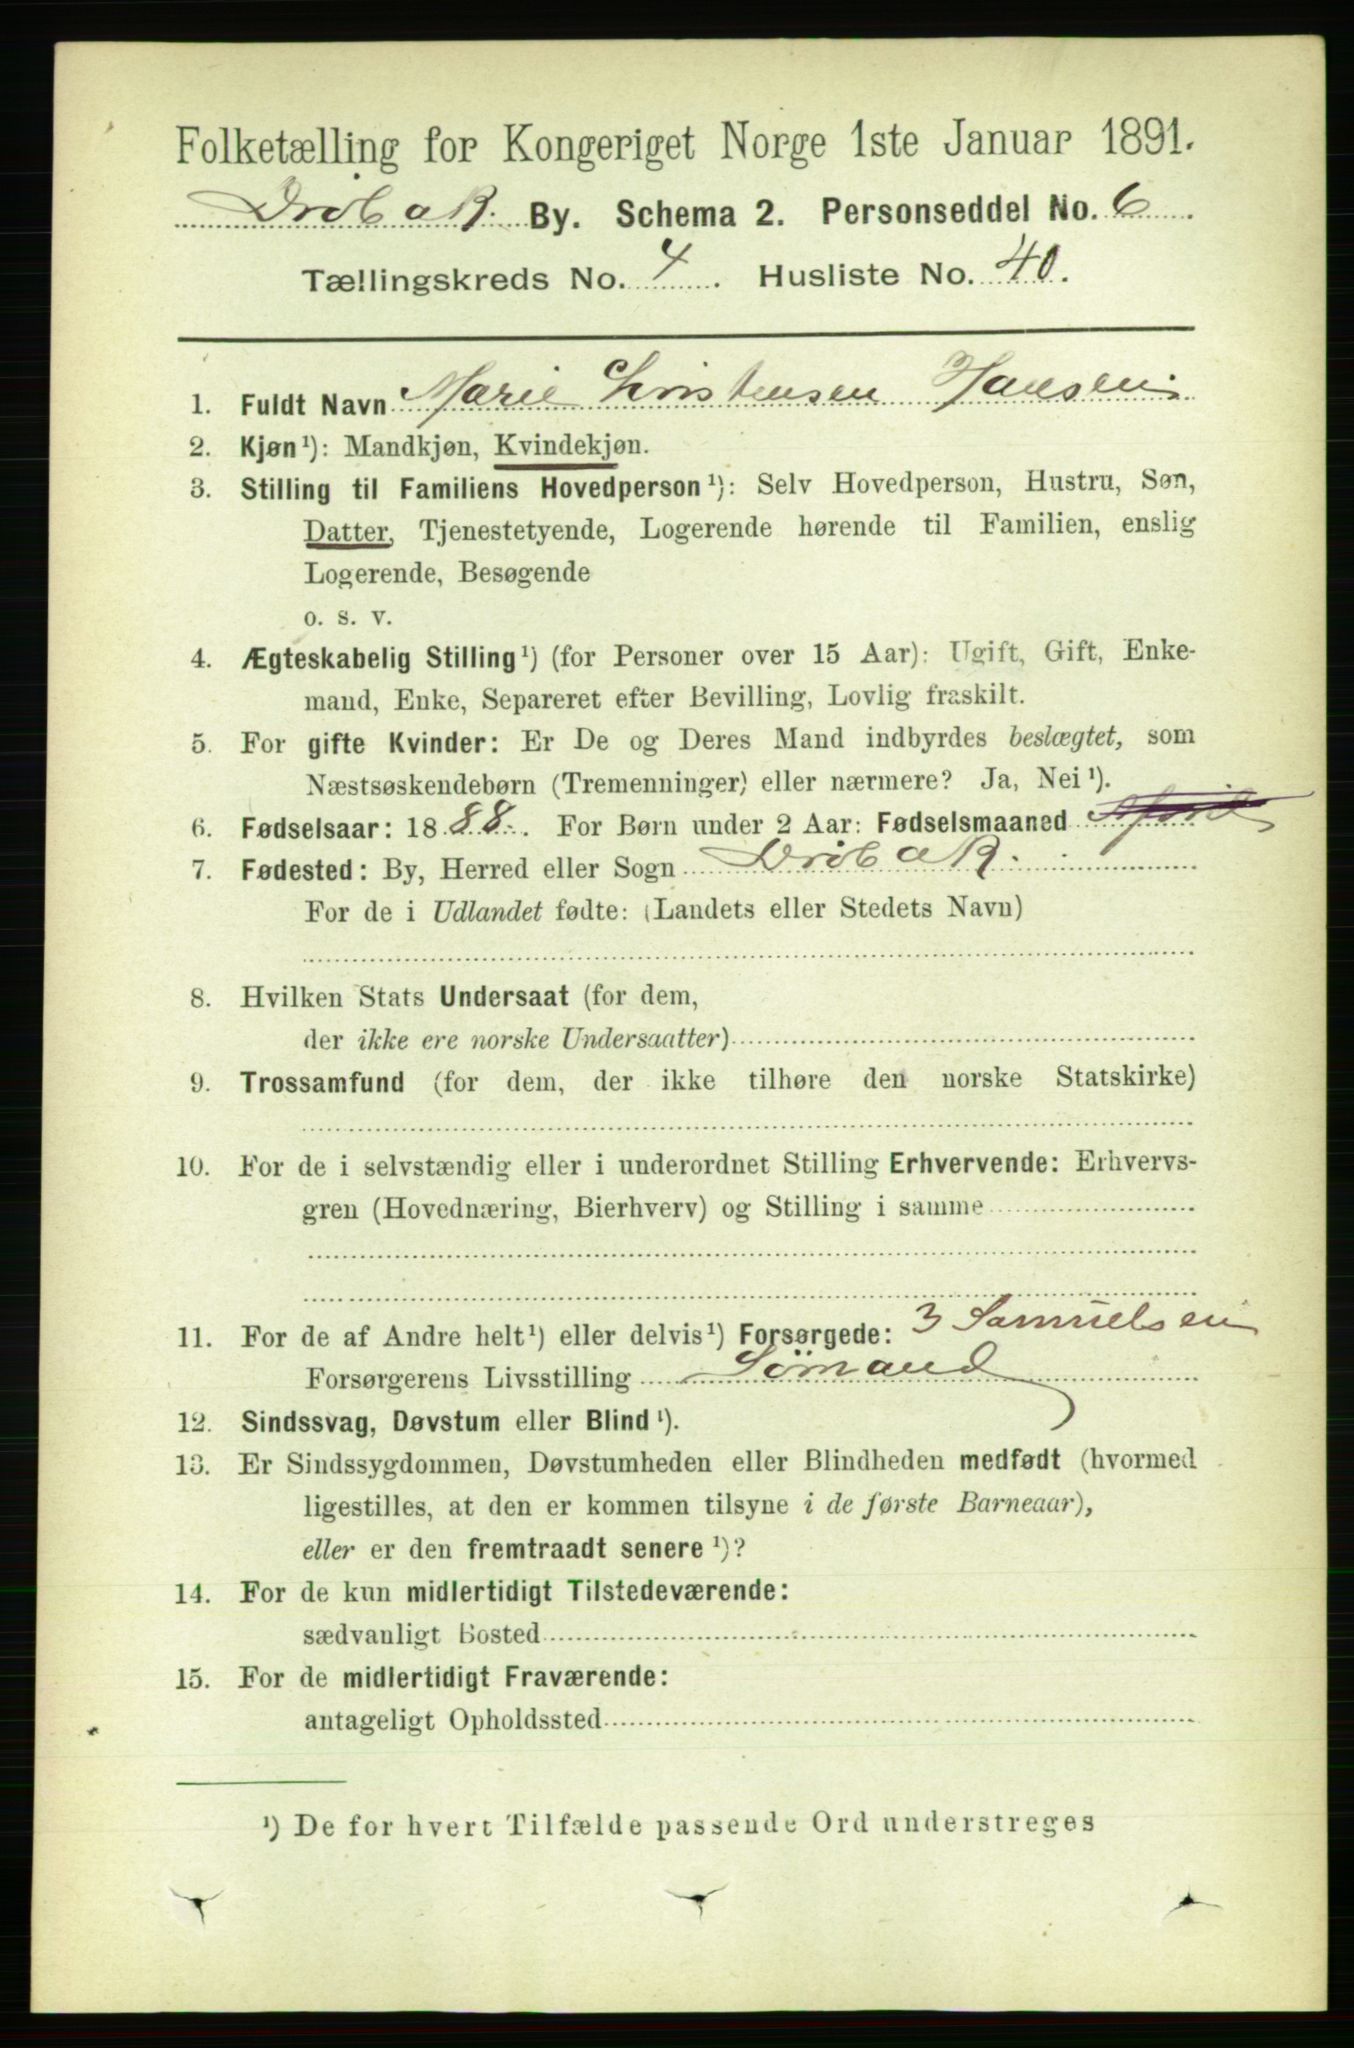 Folketælling for Kongeriget Norge 1ste Januar 1891.
Drøbak. By. Schema 2. Personseddel No. 6
Tællingskreds No. 4. Husliste No. 40.
1. Fuldt Navn Marie Kristensen Hansen
2. Kjøn¹): Mandkjøn, Kvindekjøn.
3. Stilling til Familiens Hovedperson¹): Selv Hovedperson, Hustru, Søn,
Datter, Tjenestetyende, Logerende hørende til Familien, enslig
Logerende, Besøgende
o. s. v.
4. Ægteskabelig Stilling¹) (for Personer over 15 Aar): Ugift, Gift, Enke-
mand, Enke, Separeret efter Bevilling, Lovlig fraskilt.
5. For gifte Kvinder: Er De og Deres Mand indbyrdes beslægtet, som
Næstsøskendebørn (Tremenninger) eller nærmere? Ja, Nei¹).
6. Fødselsaar: 1888. For Børn under 2 Aar: Fødselsmaaned April
7. Fødested: By, Herred eller Sogn Drøbak.
For de i Udlandet fødte: (Landets eller Stedets Navn)
8. Hvilken Stats Undersaat (for dem,
der ikke ere norske Undersaatter)
9. Trossamfund (for dem, der ikke tilhøre den norske Statskirke)
10. For de i selvstændig eller i underordnet Stilling Erhvervende: Erhvervs-
gren (Hovednæring, Bierhverv) og Stilling i samme
11. For de af Andre helt¹) eller delvis¹) Forsørgede: 3 Samuelsen
Forsørgerens Livsstilling Sömand
12. Sindssvag, Døvstum eller Blind¹).
13. Er Sindssygdommen, Døvstumheden eller Blindheden medfødt (hvormed
ligestilles, at den er kommen tilsyne i de første Barneaar),
eller er den fremtraadt senere¹)?
14. For de kun midlertidigt Tilstedeværende:
sædvanligt Bosted
15. For de midlertidigt Fraværende:
antageligt Opholdssted
¹) De for hvert Tilfælde passende Ord understreges